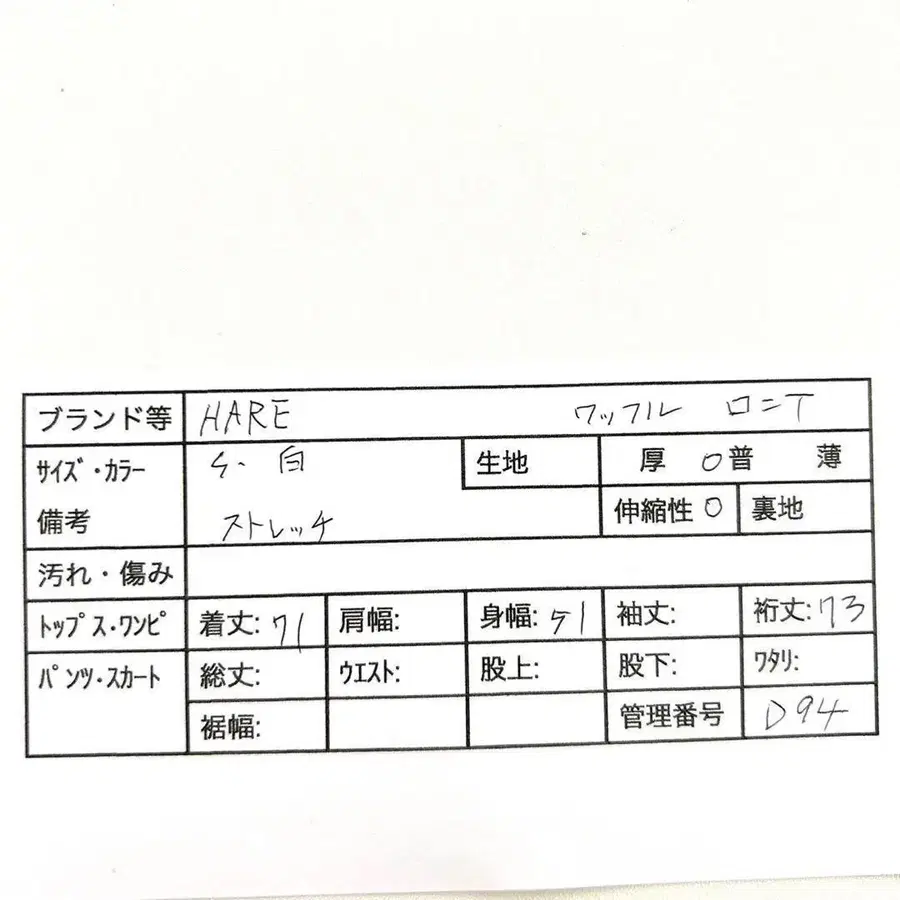 ブランド等 HARE ワッフル ロンT
サイズ・カラー S・白 生地 厚 ○普 薄
備考 ストレッチ 伸縮性 ○ 裏地
汚れ・傷み
トップス・ワンピ 着丈: 71 肩幅: 身幅: 51 袖丈: 裄丈: 73
パンツ・スカート 総丈: ウエスト: 股上: 股下: ワタリ:
裾幅: 管理番号 D94